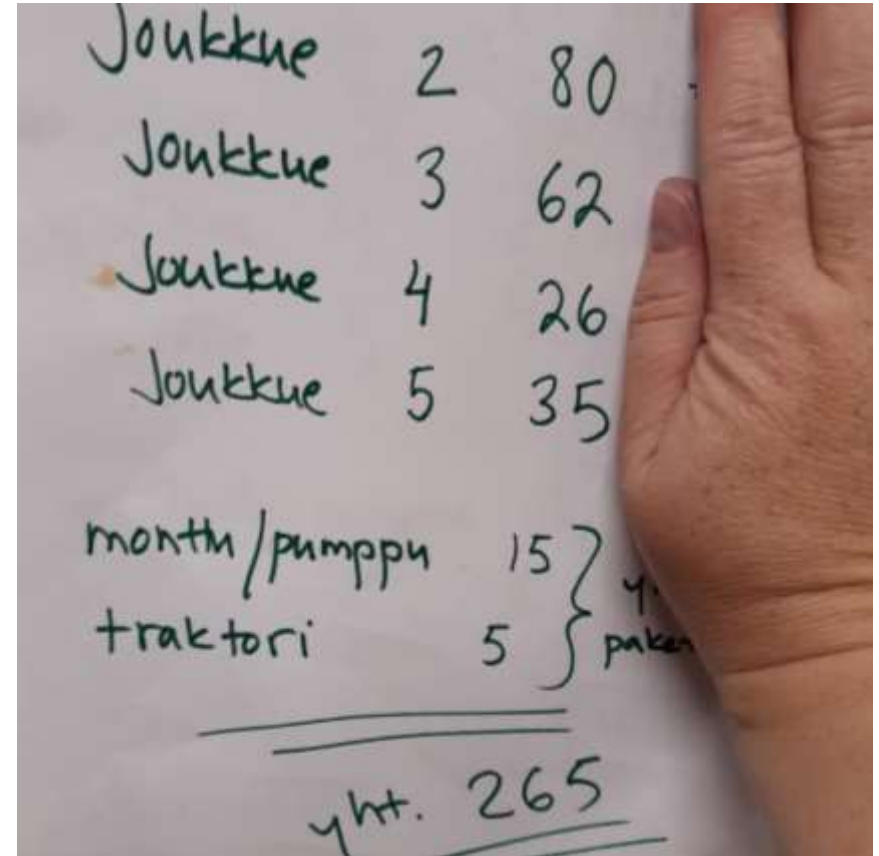 Joukkue 2 80
Joukkue 3 62
Joukkue 4 26
Joukkue 5 35
/pumppu 15
traktori 5
yht. 265